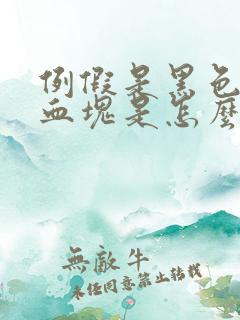 例假是黑色
血塊是怎麼
無敵牛
未经同意禁止转载